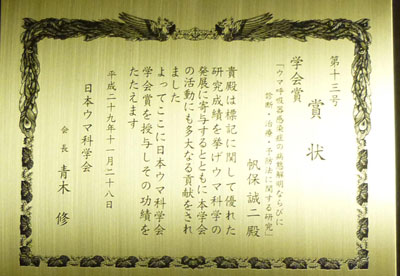 第十三号
学会賞 賞状
「ウマ呼吸器感染症の病態解明ならびに
診断・治療・予防法に関する研究」
帆保誠二殿
貴殿は標記に関して優れた
研究成績を挙げウマ科学の
発展に寄与するとともに本学会
の活動にも多大なる貢献をされ
ました
よってここに日本ウマ科学会
学会賞を授与しその功績を
たたえます
平成二十九年十一月二十八日
日本ウマ科学会
会長 青木 修